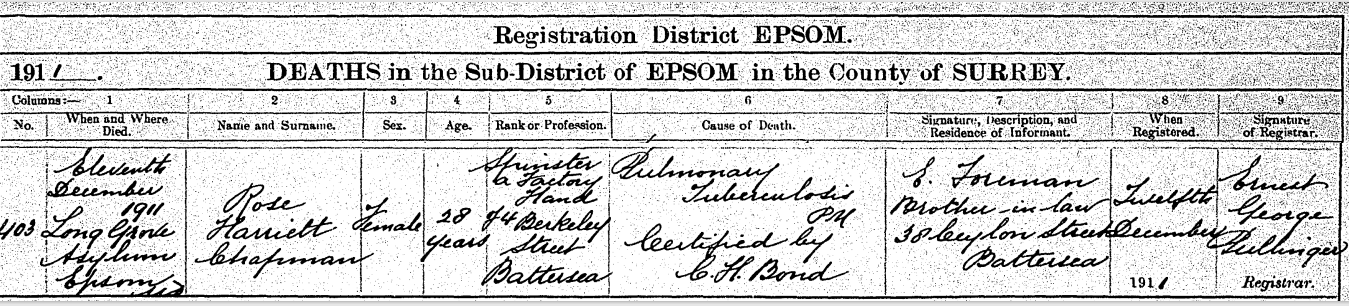 Registration District EPSOM.
1911. DEATHS in the Sub-District of EPSOM in the County of SURREY.
Columns:— 1 2 3 4 5 6 7 8 9
No. When and Where Died. Name and Surname. Sex. Age. Rank or Profession. Cause of Death. Signature, Description, and Residence of Informant. When Registered. Signature of Registrar.
403
Eleventh
December
1911
Long Grove
Asylum
Epsom
Rose
Harriett
Chapman
Female
28
years
Spinster
a Factory
Hand
Berkeley
Street
Battersea
Pulmonary
Tuberculosis
PM
Certified by
C. H. Bond
E. Foreman
Brother-in-law
38 Ceylon Street
Battersea
Twelfth
December
1911
Ernest
George
Pullinger
Registrar.